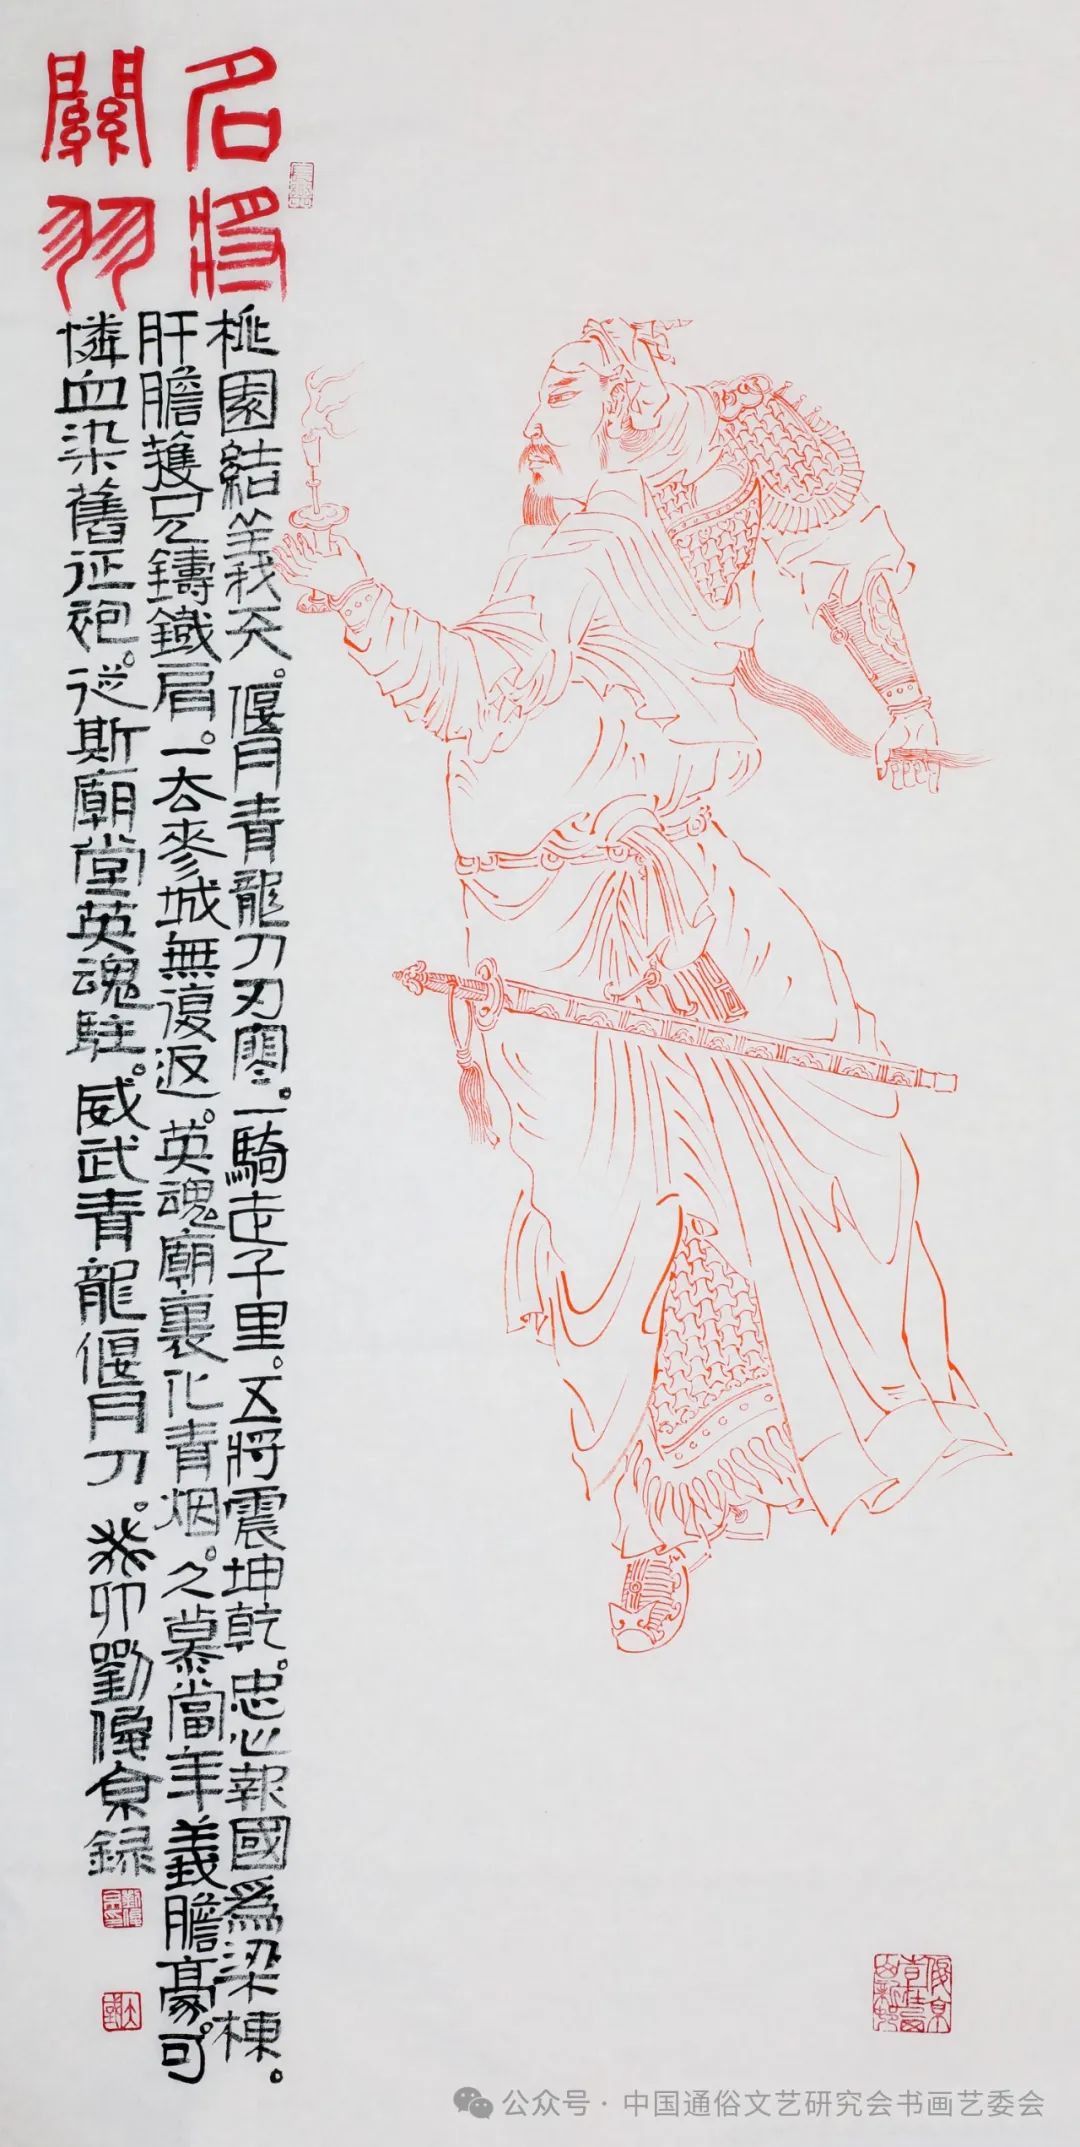 名將
關羽
桃園結義天。偃月青龍刀刃寒。一騎走千里。五將震坤乾。忠心報國爲梁棟。
肝膽護兄鑄鐵肩。一去麥城無復返。英魂廟裏化青烟。久慕當年義膽豪。可
憐血染舊征袍。從斯廟堂英魂駐。威武青龍偃月刀。癸卯劉俊京録
公众号·中国通俗文艺研究会书画艺委会